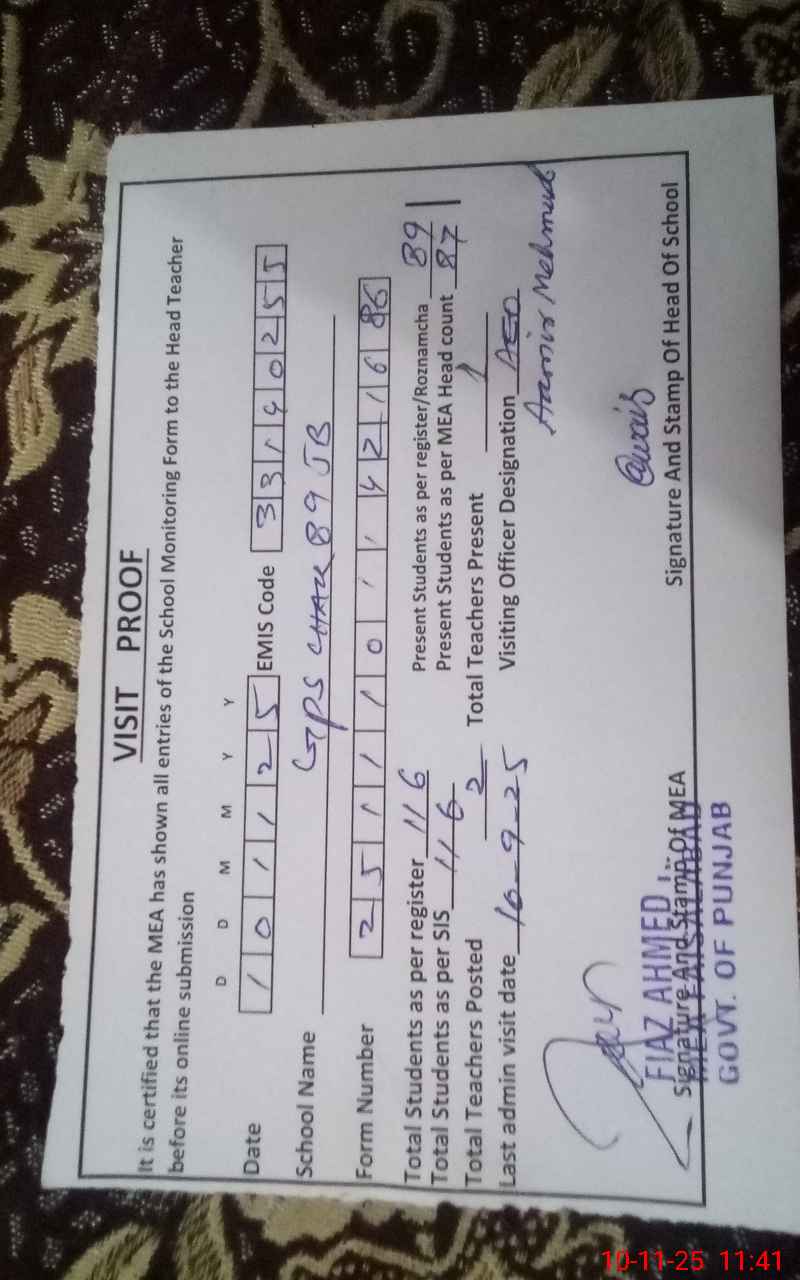 VISIT PROOF
It is certified that the MEA has shown all entries of the School Monitoring Form to the Head Teacher
before its online submission
D D M M Y Y
Date 1 0 1 1 2 5 EMIS Code 3 3 1 4 0 2 5 5
School Name GPS CHAK 89 JB
Form Number 2 5 1 1 1 0 1 1 4 2 1 6 86
Total Students as per register 116 Present Students as per register/Roznamcha 89
Total Students as per SIS 116 Present Students as per MEA Head count 87
Total Teachers Posted 2 Total Teachers Present 1
Last admin visit date 10-9-25 Visiting Officer Designation AEO
Aamir Mehmud
Owais
FIAZ AHMED
Signature And Stamp Of MEA Signature And Stamp Of Head Of School
MEA FAISALABAD
GOVT. OF PUNJAB
10-11-25 11:41